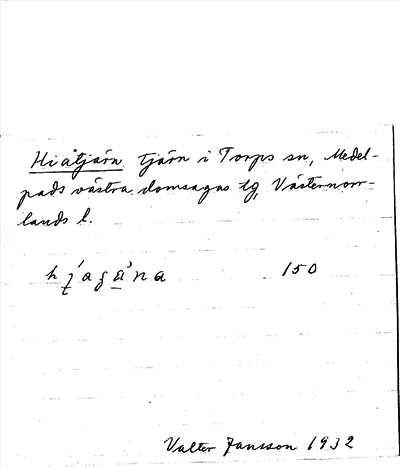 Hiåtjärn tjärn i Torps sn, Medel-
pads västra domsagas tg, Västernorr-
lands l.
150
Valter Jansson 1932